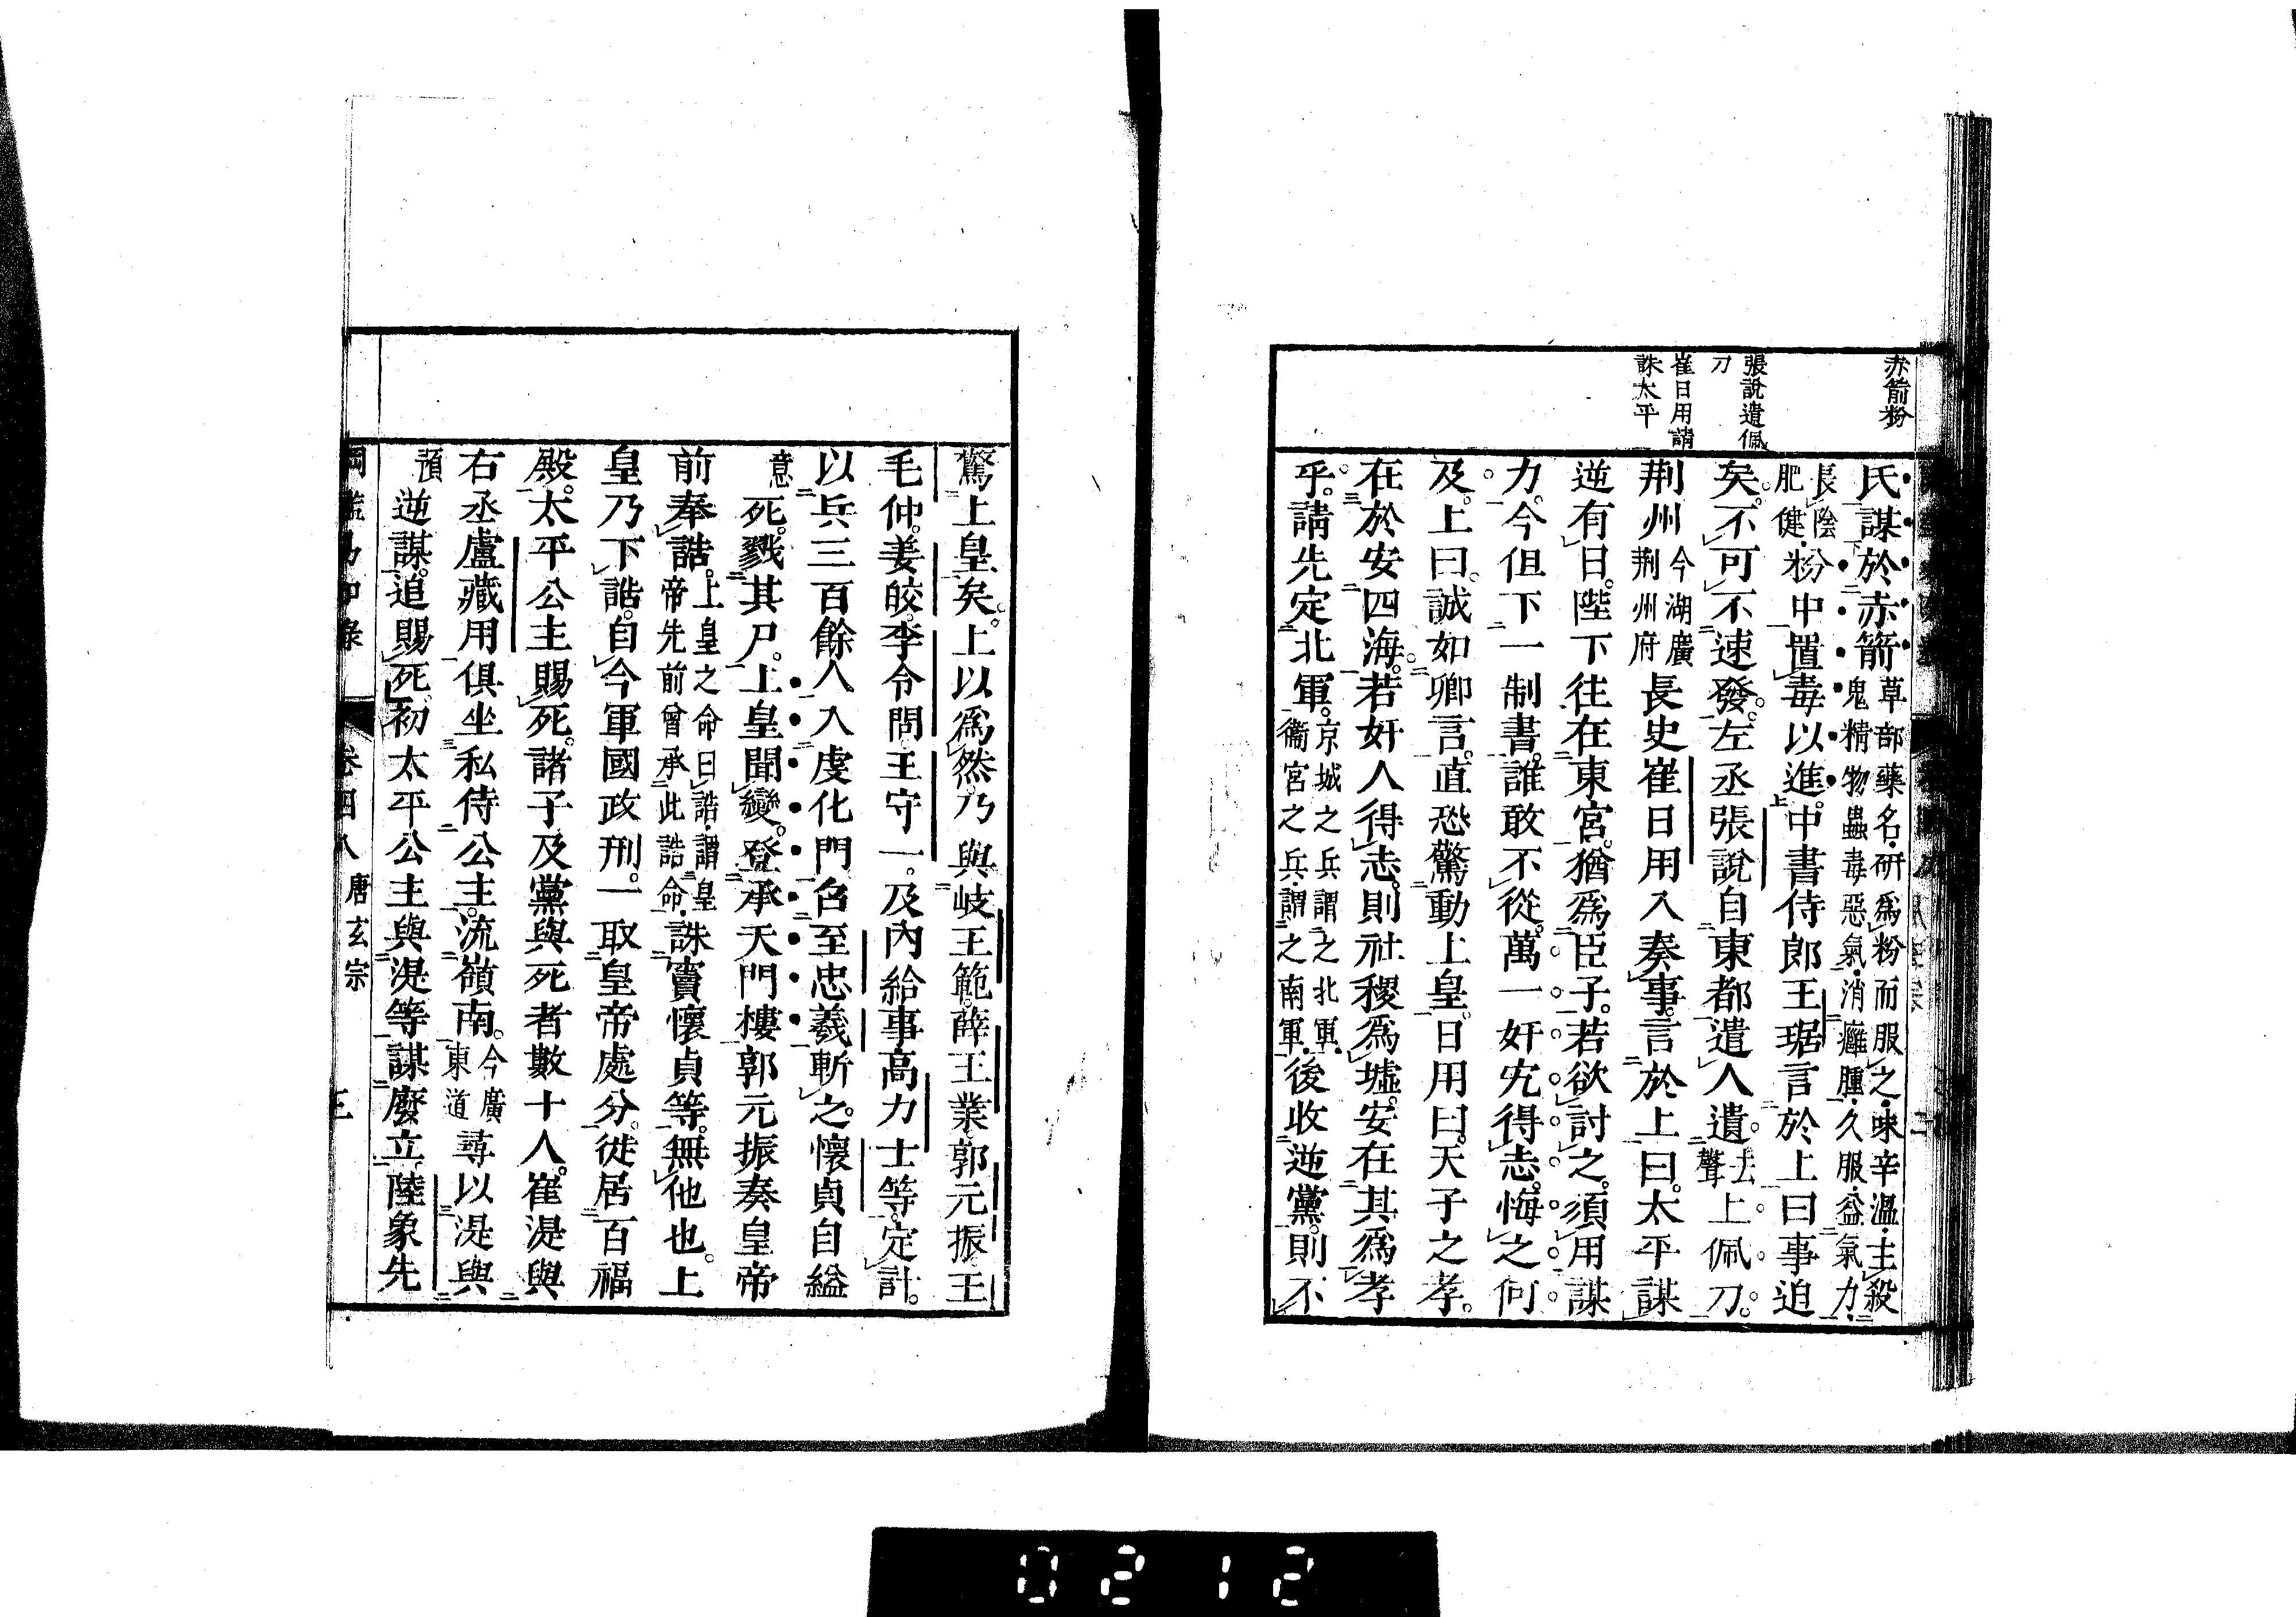 赤箭粉
張說遺佩
刀
崔日用請
誅太平
氏謀於赤箭草部藥名研爲粉而服之味辛溫主殺鬼精物蟲毒惡氣消癰腫久服益氣力
長陰肥健粉中置毒以進中書侍郎王琚言於上曰事迫
矣不可不速發左丞張說自東都遣人遺去聲上佩刀
荆州今湖廣荆州府長史崔日用入奏事言於上曰太平謀
逆有日陛下往在東宮猶爲臣子若欲討之須用謀
力今但下一制書誰敢不從萬一奸宄得志悔之何
及上曰誠如卿言直恐驚動上皇日用曰天子之孝
在於安四海若奸人得志則社稷爲墟安在其爲孝
乎請先定北軍京城之兵謂之北軍衞宮之兵謂之南軍後收逆黨則不
驚上皇矣上以爲然乃與岐王範薛王業郭元振王
毛仲姜皎李令問王守一及內給事高力士等定計
以兵三百餘人入虔化門召至忠羲斬之懷貞自縊
意死戮其尸上皇聞變登承天門樓郭元振奏皇帝
前奉誥上皇之命曰誥謂皇帝先前曾承此誥命誅竇懷貞等無他也上
皇乃下誥自今軍國政刑一取皇帝處分徙居百福
殿太平公主賜死諸子及黨與死者數十人崔湜與
右丞盧藏用俱坐私侍公主流嶺南今廣東道尋以湜與
預逆謀追賜死初太平公主與湜等謀廢立陸象先
卷四八 唐玄宗 三
0212